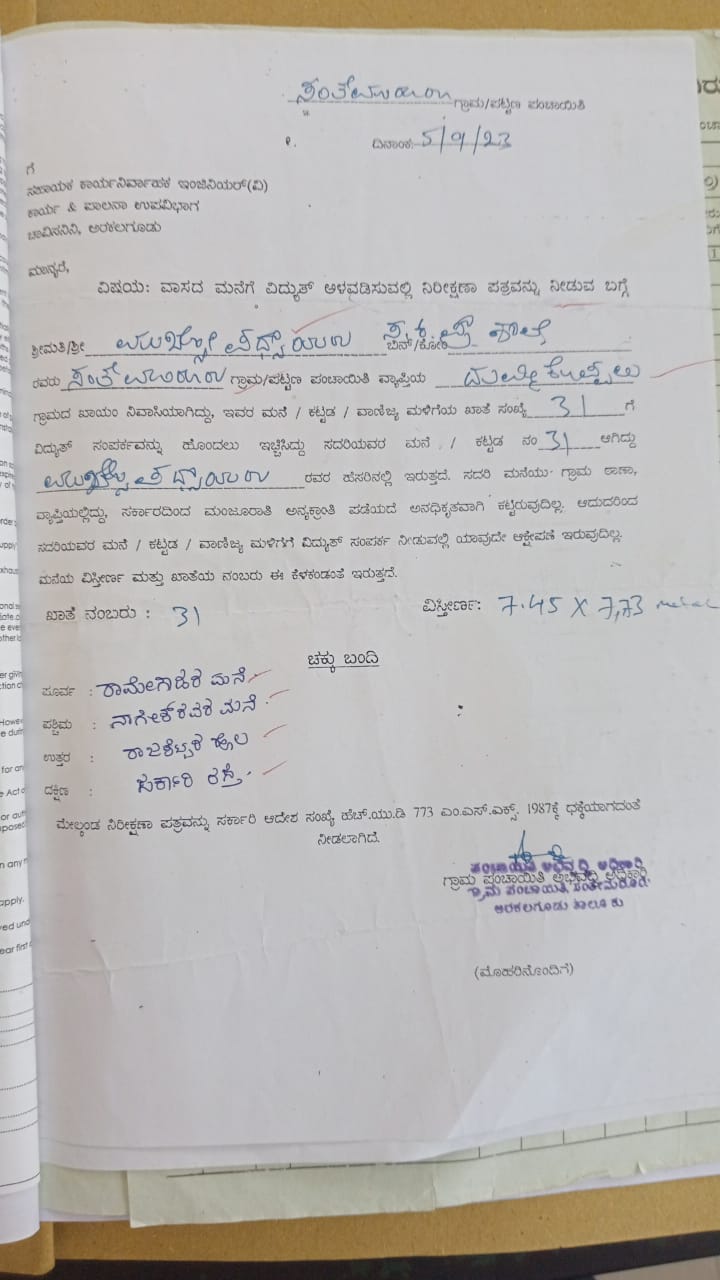 ಸಂತೇಮರೂರು ಗ್ರಾಮ/ಪಟ್ಟಣ ಪಂಚಾಯಿತಿ
ದಿನಾಂಕ: 5/9/23
ಗೆ
ಸಹಾಯಕ ಕಾರ್ಯನಿರ್ವಾಹಕ ಇಂಜಿನಿಯರ್(ವಿ)
ಕಾರ್ಯ & ಪಾಲನಾ ಉಪವಿಭಾಗ
ಚಾವಿಸನಿನಿ, ಅರಕಲಗೂಡು
ಮಾನ್ಯರೆ,
ವಿಷಯ: ವಾಸದ ಮನೆಗೆ ವಿದ್ಯುತ್ ಅಳವಡಿಸುವಲ್ಲಿ ನಿರೀಕ್ಷಣಾ ಪತ್ರವನ್ನು ನೀಡುವ ಬಗ್ಗೆ
ಶ್ರೀಮತಿ/ಶ್ರೀ ಬಿನ್/ಕೋಂ
ರವರು ಸಂತೇಮರೂರು ಗ್ರಾಮ/ಪಟ್ಟಣ ಪಂಚಾಯಿತಿ ವ್ಯಾಪ್ತಿಯ
ಗ್ರಾಮದ ಖಾಯಂ ನಿವಾಸಿಯಾಗಿದ್ದು, ಇವರ ಮನೆ / ಕಟ್ಟಡ / ವಾಣಿಜ್ಯ ಮಳಿಗೆಯ ಖಾತೆ ಸಂಖ್ಯೆ 31 ಗೆ
ವಿದ್ಯುತ್ ಸಂಪರ್ಕವನ್ನು ಹೊಂದಲು ಇಚ್ಛಿಸಿದ್ದು ಸದರಿಯವರ ಮನೆ / ಕಟ್ಟಡ ನಂ 31 ಆಗಿದ್ದು
ರವರ ಹೆಸರಿನಲ್ಲಿ ಇರುತ್ತದೆ. ಸದರಿ ಮನೆಯು ಗ್ರಾಮ ಠಾಣಾ,
ವ್ಯಾಪ್ತಿಯಲ್ಲಿದ್ದು, ಸರ್ಕಾರದಿಂದ ಮಂಜೂರಾತಿ ಅನ್ಯಕ್ರಾಂತಿ ಪಡೆಯದೆ ಅನಧಿಕೃತವಾಗಿ ಕಟ್ಟಿರುವುದಿಲ್ಲ. ಆದುದರಿಂದ
ಸದರಿಯವರ ಮನೆ / ಕಟ್ಟಡ / ವಾಣಿಜ್ಯ ಮಳಿಗೆಗೆ ವಿದ್ಯುತ್ ಸಂಪರ್ಕ ನೀಡುವಲ್ಲಿ ಯಾವುದೇ ಆಕ್ಷೇಪಣೆ ಇರುವುದಿಲ್ಲ.
ಮನೆಯ ವಿಸ್ತೀರ್ಣ ಮತ್ತು ಖಾತೆಯ ನಂಬರು ಈ ಕೆಳಕಂಡಂತೆ ಇರುತ್ತದೆ.
ಖಾತೆ ನಂಬರು : 31 ವಿಸ್ತೀರ್ಣ: 7.45 X 7,73
ಚಕ್ಕು ಬಂದಿ
ಪೂರ್ವ : ರಾಮೇಗೌಡರ ಮನೆ
ಪಶ್ಚಿಮ : ನಾಗೇಶ್‌ರವರ ಮನೆ
ಉತ್ತರ : ರಾಜಶೆಟ್ಟರ ಹೊಲ
ದಕ್ಷಿಣ : ಸರ್ಕಾರಿ ರಸ್ತೆ
ಮೇಲ್ಕಂಡ ನಿರೀಕ್ಷಣಾ ಪತ್ರವನ್ನು ಸರ್ಕಾರಿ ಆದೇಶ ಸಂಖ್ಯೆ ಹೆಚ್.ಯು.ಡಿ 773 ಎಂ.ಎನ್.ಎಕ್ಸ್. 1987ಕ್ಕೆ ಧಕ್ಕೆಯಾಗದಂತೆ
ನೀಡಲಾಗಿದೆ.
ಪಂಚಾಯಿತಿ ಅಭಿವೃದ್ಧಿ ಅಧಿಕಾರಿ
ಗ್ರಾಮ ಪಂಚಾಯಿತಿ ಅಭಿವೃದ್ಧಿ ಅಧಿಕಾರಿ
ಗ್ರಾಮ ಪಂಚಾಯಿತಿ, ಸಂತೇಮರೂರು
ಅರಕಲಗೂಡು ತಾಲೂಕು
(ಮೊಹರಿನೊಂದಿಗೆ)